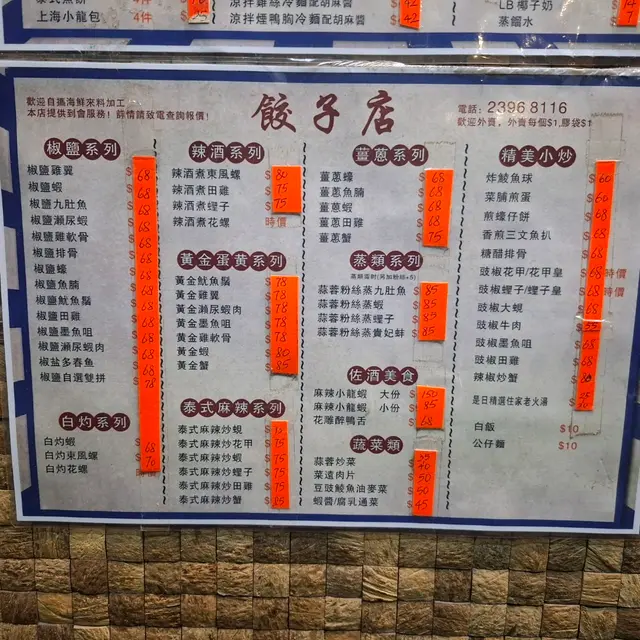 上海小龍包 4件
涼拌煙鴨胸冷麵配胡麻醬 42
LB 椰子奶
蒸餾水 7
歡迎自攜海鮮來料加工
本店提供到會服務! 詳情請致電查詢報價!
餃子店
電話: 2396 8116
歡迎外賣，外賣每個$1,膠袋$1
椒鹽系列
椒鹽雞翼 $68
椒鹽蝦 $68
椒鹽九肚魚 $68
椒鹽瀨尿蝦 $68
椒鹽雞軟骨 $68
椒鹽排骨 $68
椒鹽蠔 $68
椒鹽魚腩 $68
椒鹽魷魚鬚 $68
椒鹽田雞 $68
椒鹽墨魚咀 $68
椒鹽瀨尿蝦肉 $68
椒盐多春魚 $68
椒鹽自選雙拼 $78
白灼系列
白灼蝦 $68
白灼東風螺 $70
白灼花螺
辣酒系列
辣酒煮東風螺 $80
辣酒煮田雞 $75
辣酒煮蟶子 $75
辣酒煮花螺 時價
黃金蛋黃系列
黃金魷魚鬚 $78
黃金雞翼 $78
黃金瀨尿蝦肉 $78
黃金墨魚咀 $78
黃金雞軟骨 $78
黃金蝦 $80
黃金蟹 $85
泰式麻辣系列
泰式麻辣炒蜆 $
泰式麻辣炒花甲 $75
泰式麻辣炒蝦 $75
泰式麻辣炒蟶子 $75
泰式麻辣炒田雞 $75
泰式麻辣炒蟹 $85
薑蔥系列
薑蔥蠔 $68
薑蔥魚腩 $68
薑蔥蝦 $68
薑蔥田雞 $68
薑蔥蟹 $75
蒸類系列
蒜蓉粉絲蒸九肚魚 $85
蒜蓉粉絲蒸蝦 $85
蒜蓉粉絲蒸蟶子 $85
蒜蓉粉絲蒸貴妃蚌 $85
佐酒美食
麻辣小龍蝦 大份 $150
麻辣小龍蝦 小份 $85
花雕醉鴨舌 $68
蔬菜類
蒜蓉炒菜
菜遠肉片 $50
豆豉鯪魚油麥菜 $50
蝦醬/腐乳通菜 $45
精美小炒
炸鯪魚球 $60
菜脯煎蛋 $60
煎蠔仔餅 $68
香煎三文魚扒 $68
糖醋排骨 $68
豉椒花甲/花甲皇 $68 時價
豉椒蟶子/蟶子皇 $68 時價
豉椒大蜆 $68
豉椒牛肉 $55
豉椒墨魚咀 $68
豉椒田雞 $68
辣椒炒蟹 $80
是日精選住家老火湯
白飯 $10
公仔麵 $10